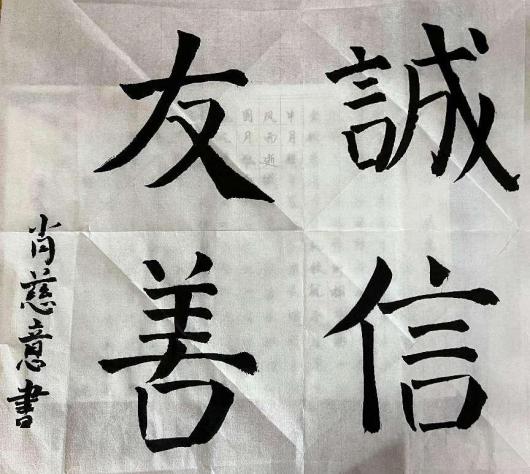 誠信
友善
肖慈意書